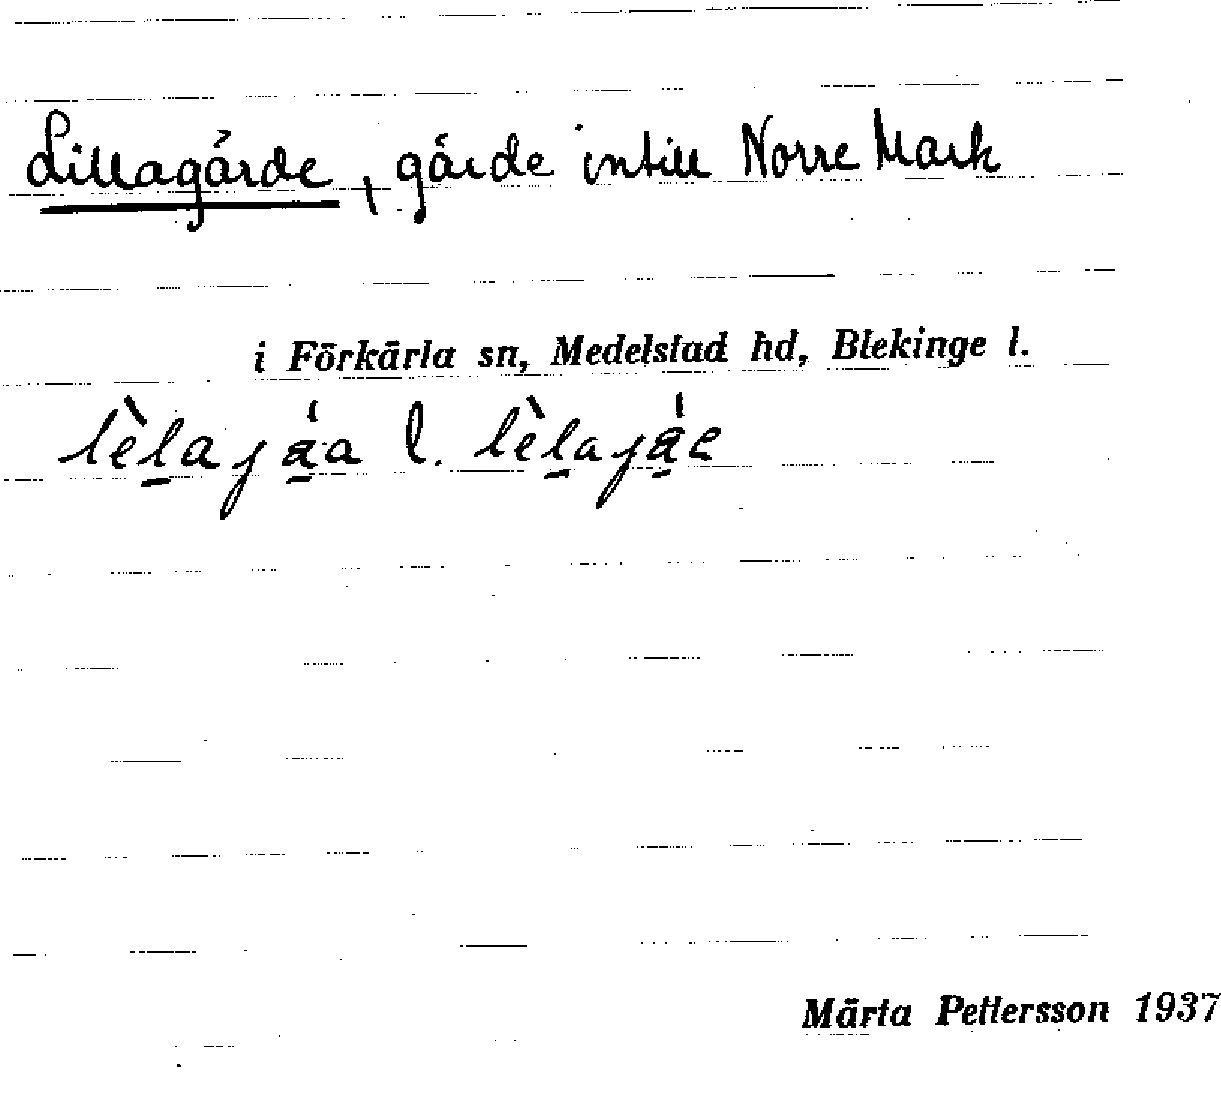 Lillagärde, gärde intill Norre Mark
i Förkärla sn, Medelstad hd, Blekinge l.
lèlajàa l. lèlajàe
Märta Pettersson 1937